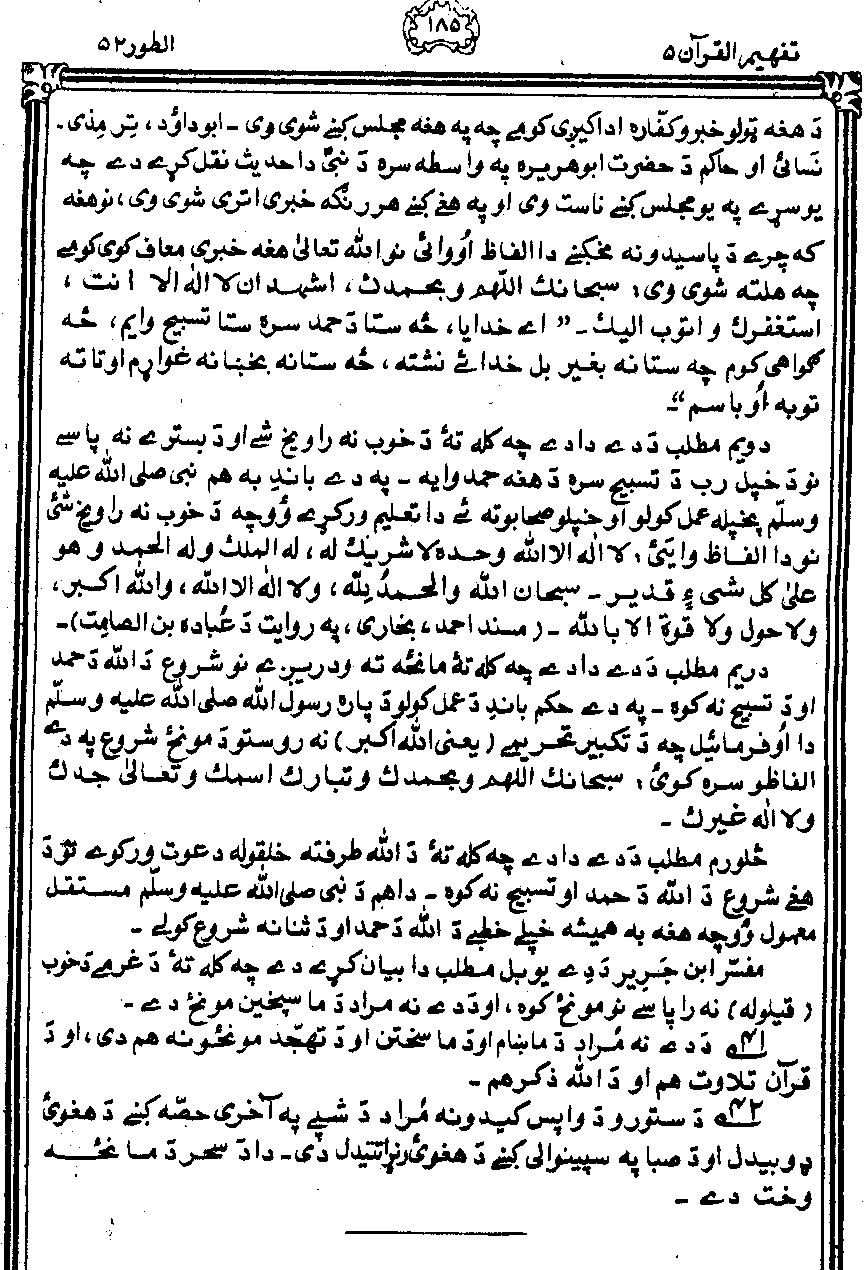 تفهيم القرآن ۵
۱۸۵
الطور ۵۲
دَ هغه ټولو خبرو کفّاره اداکیږی کومے چه په هغه مجلس کښے شوی وی ـ ابوداؤد، تِرمِذی.
نَسائیؒ او حاکم دَ حضرت ابوهریره په واسطه سره دَ نبیؐ دا حدیث نقل کړے دے چه
یو سړے په یو مجلس کښے ناست وی او په هغے کښے هر رنګه خبری اتری شوی وی، نو هغه
که چرے دَ پاسیدو نه مخکښے دا الفاظ اُووائی نو الله تعالیٰ هغه خبری معاف کوی کومے
چه هلته شوی وی: سبحانك اللّهم وبحمدك، اشهد ان لا اله الا انت،
استغفرك و اتوب اليك ـ" اے خدایا، څه ستا دَ حمد سره ستا تسبیح وایم، څه
ګواهی کوم چه ستا نه بغیر بل خدائے نشته، څه ستا نه بخښنه غواړم او تا ته
توبه اُوباسم"ـ
دویم مطلب دَ دے دا دے چه کله تهٔ دَ خوب نه راویخ شے او دَ بسترے نه پاسے
نو دَ خپل رب دَ تسبیح سره دَ هغه حمد وایه ـ په دے باندِ به هم نبی صلی الله علیه
وسلّم پخپله عمل کولو او خپلو صحابو ته ئے دا تعلیم ورکړے وؤ چه دَ خوب نه راویخ شئ
نو دا الفاظ وایئ: لا اله الا الله وحده لا شريك له، له الملك وله الحمد و هو
علیٰ کل شیءٍ قدیر ـ سبحان الله والحمدُ لِلّه، ولا اله الا الله، والله اکبر،
ولا حول ولا قوة الا بالله ـ (مسند احمد، بخاری، په روایت دَ عُباده بن الصامِت)ـ
دریم مطلب دَ دے دا دے چه کله تهٔ مانځه ته ودریږے نو شروع دَ الله دَ حمد
او دَ تسبیح نه کوه ـ په دے حکم باندِ دَ عمل کولو دَ پاره رسول الله صلی الله علیه وسلّم
دا اُوفرمائیل چه دَ تکبیر تحریمے (یعنی الله اکبر) نه روستو دَ مونځ شروع په دے
الفاظو سره کوئ: سبحانك اللهم وبحمدك وتبارك اسمك وتعالیٰ جدك
ولا اله غیرك ـ
څلورم مطلب دَ دے دا دے چه کله تهٔ دَ الله طرفته خلقو له دعوت ورکوے نو دَ
هغے شروع دَ الله دَ حمد او تسبیح نه کوه ـ دا هم دَ نبی صلی الله علیه وسلّم مستقل
معمول وؤ چه هغه به همیشه خپلے خطبے دَ الله دَ حمد او دَ ثنا نه شروع کولے ـ
مفسّر ابن جَریر دَ دِے یو بل مطلب دا بیان کړے دے چه کله تهٔ دَ غرمے دَ خوب
(قیلوله) نه را پاسے نو مونځ کوه، او دَ دے نه مراد دَ ماسپخین مونځ دے ـ
۴۱ دَ دے نه مُراد دَ ماښام او دَ ماسختن او دَ تهجّد مونځونه هم دی، او دَ
قرآن تلاوت هم او دَ الله ذکر هم ـ
۴۲ دَ ستورو دَ واپس کیدو نه مُراد دَ شپے په آخری حصّه کښے دَ هغوئ
ډوبیدل او دَ صبا په سپینوالی کښے دَ هغوئ دی ـ دا دَ سحر دَ مانځه
وخت دے ـ